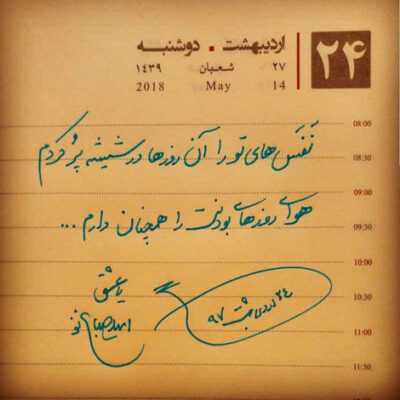 ۲۴
اردیبهشت • دوشنبه
۲۷ شعبان ۱۴۳۹
2018 May 14
08:00
نَفَس های تو را آن روزها در شیشه پُر کردم
08:30
09:00
هوای روزهای بودنت را همچنان دارم ...
09:30
10:00
با عشق
10:30
امید صباغ نو
۲۴ اردیبهشت ۹۷
11:00
11:30